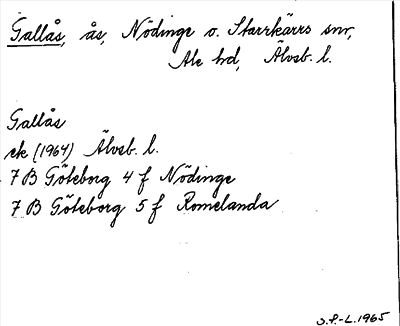 Gallås, ås, Nödinge o. Starrkärrs snr,
Ale hd, Älvsb. l.
Gallås
ek (1964) Älvsb. l.
7 B Göteborg 4 f Nödinge
7 B Göteborg 5 f Romelanda
S.F.-L. 1965